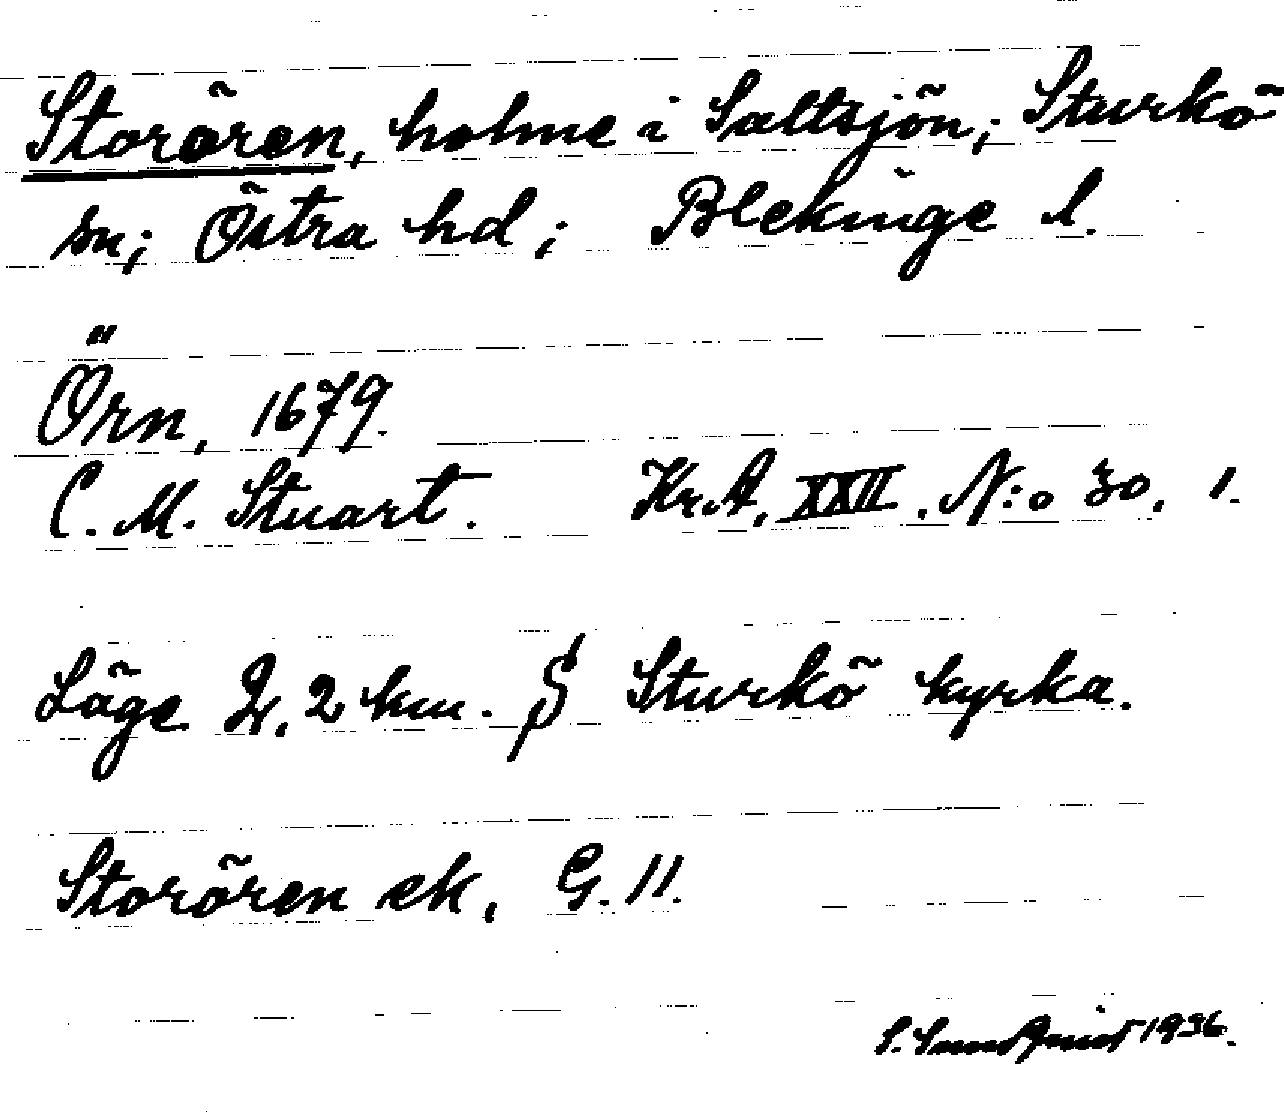 Storören, holme i Saltsjön; Sturkö
sn; Östra hd; Blekinge l.
Örn, 1679.
C. M. Stuart. Kr.A. XXII. N:o 30. 1.
Läge 2 km. Sturkö kyrka.
Storören ek, G. 11.
1936.